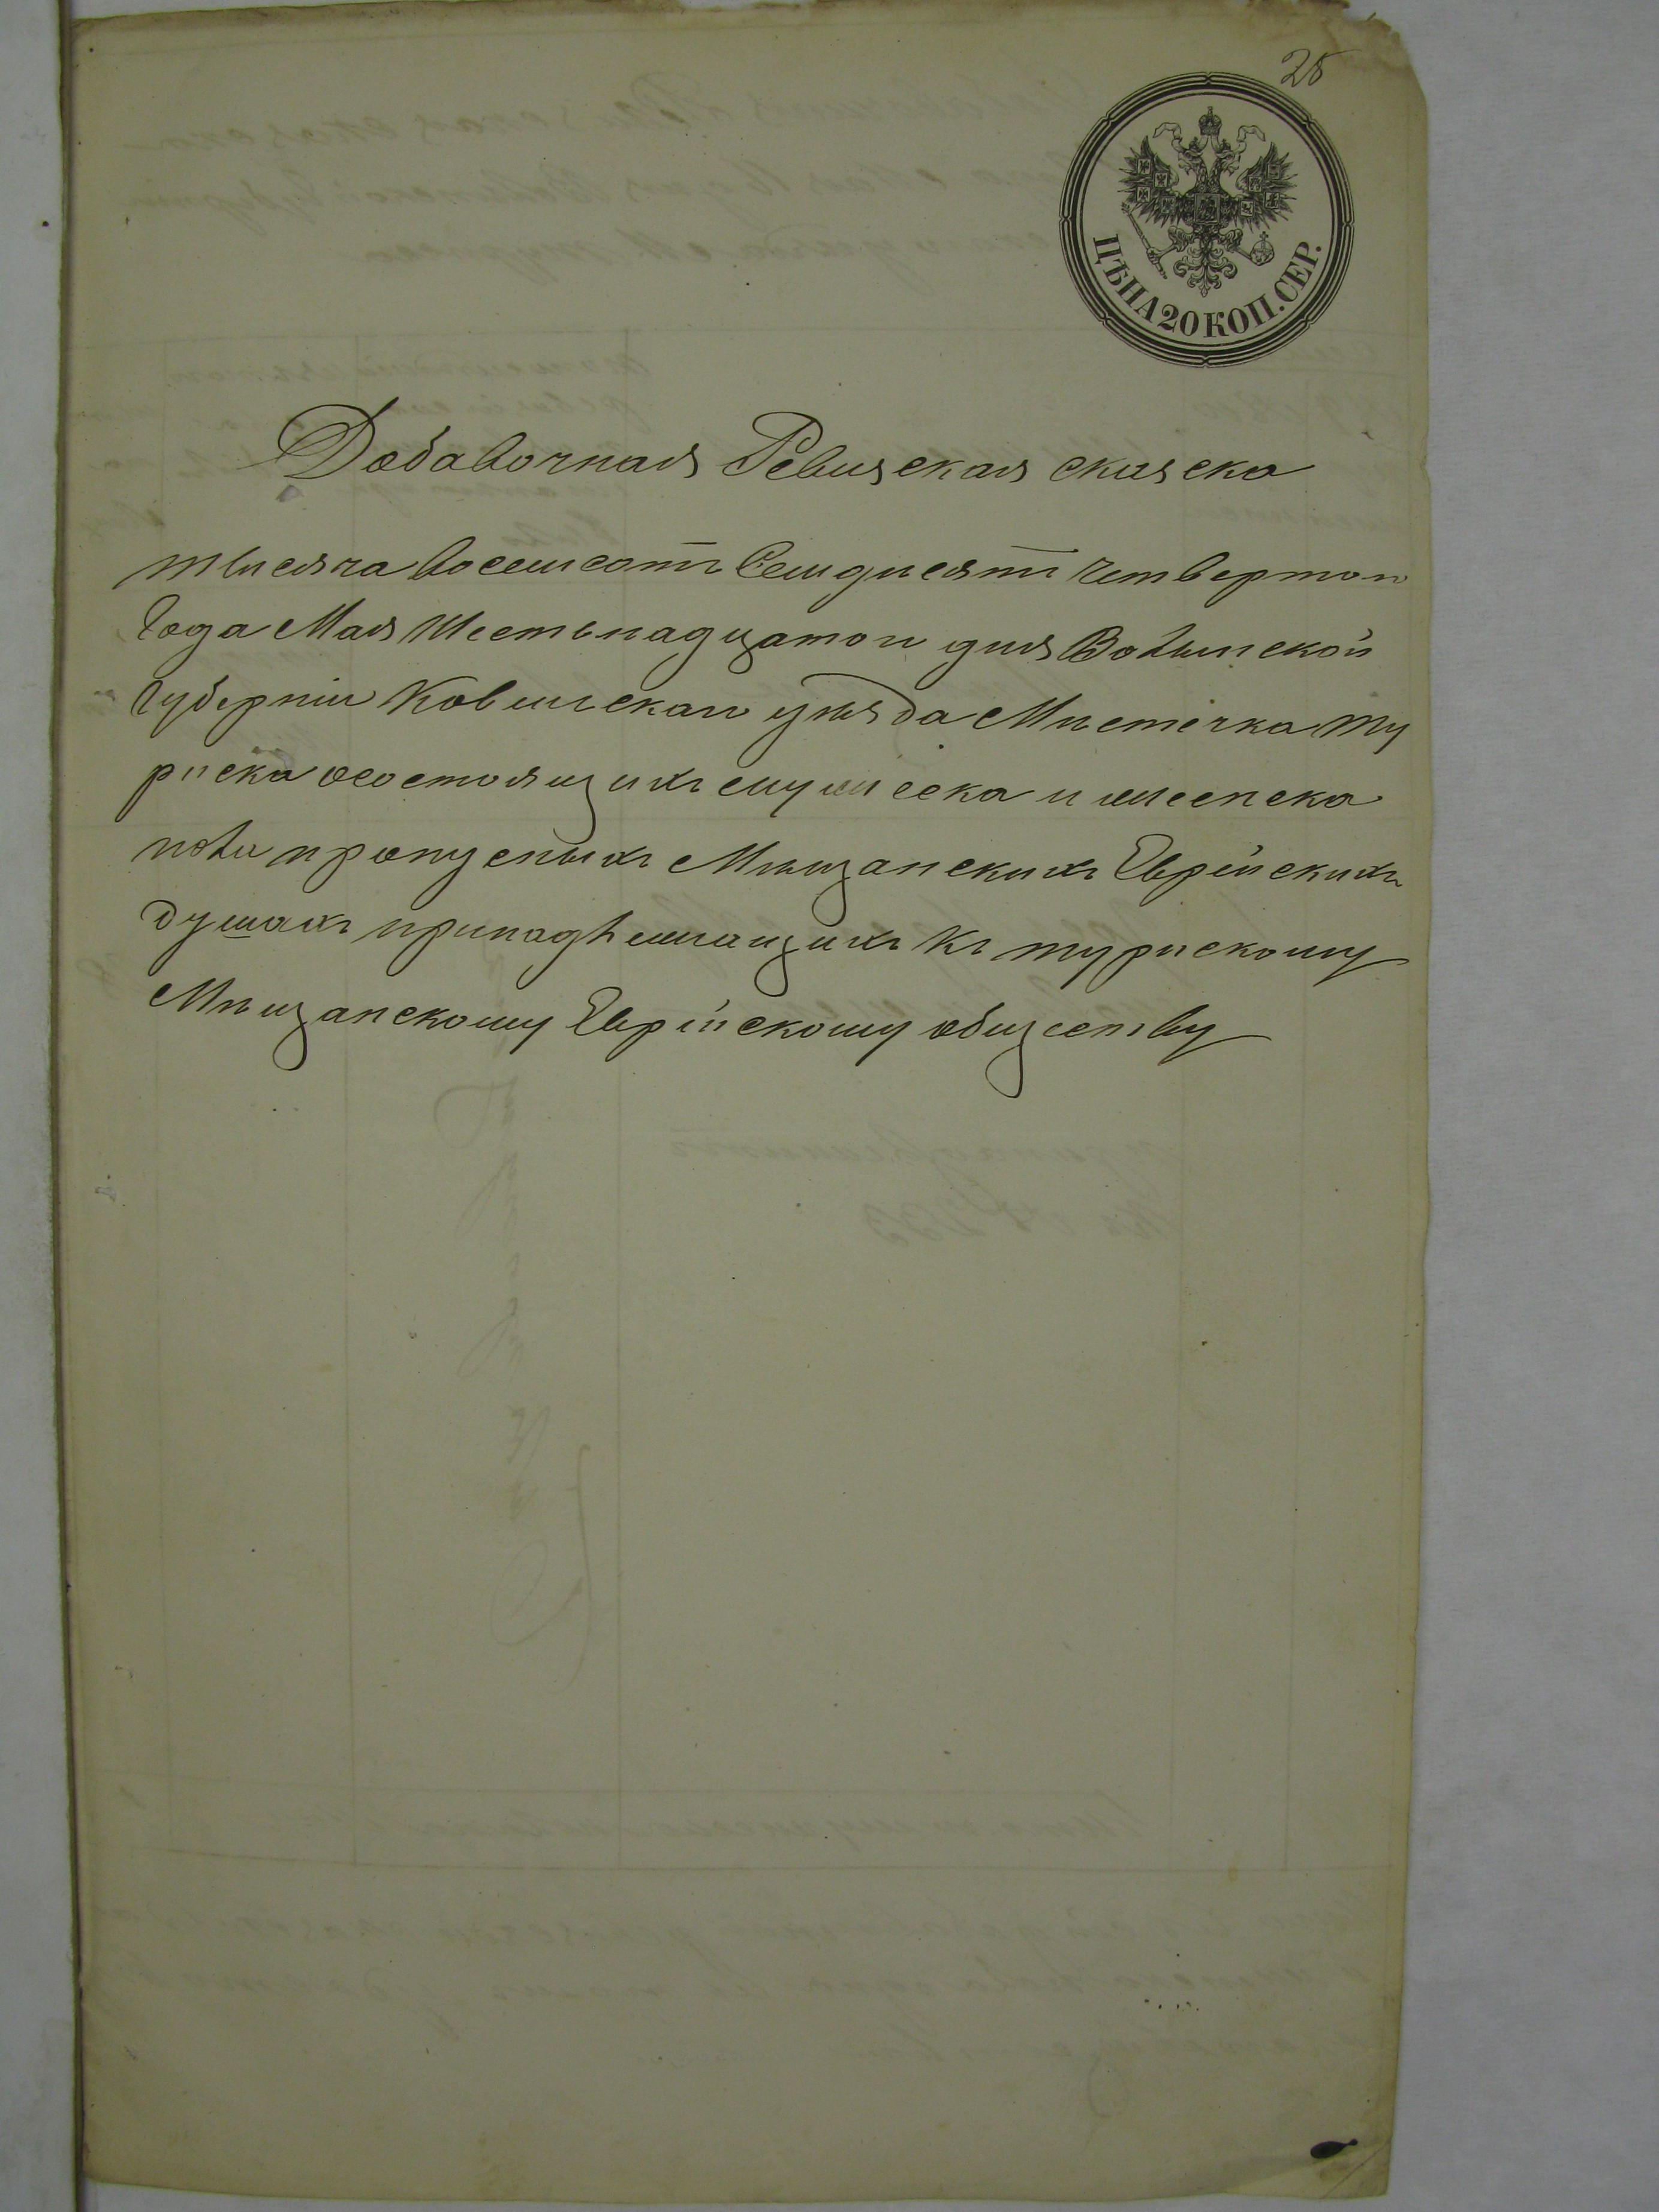 25
ЦѢНА 20 КОП. СЕР.
Добавочная Ревизская сказска
тысяча восемсотъ Семдисятъ четвертои
Года Мая Шестьнадцатои дня Волынской
Губерніи Ковельскаи уѣзда Мѣстечка Ту
риска осостоящихъ мужеска и женска
пола пропусныхъ Мѣщанскихъ Еврейскихъ
душахъ принадлежащихъ къ турискому
Мѣщанскому Еврейскому обществу